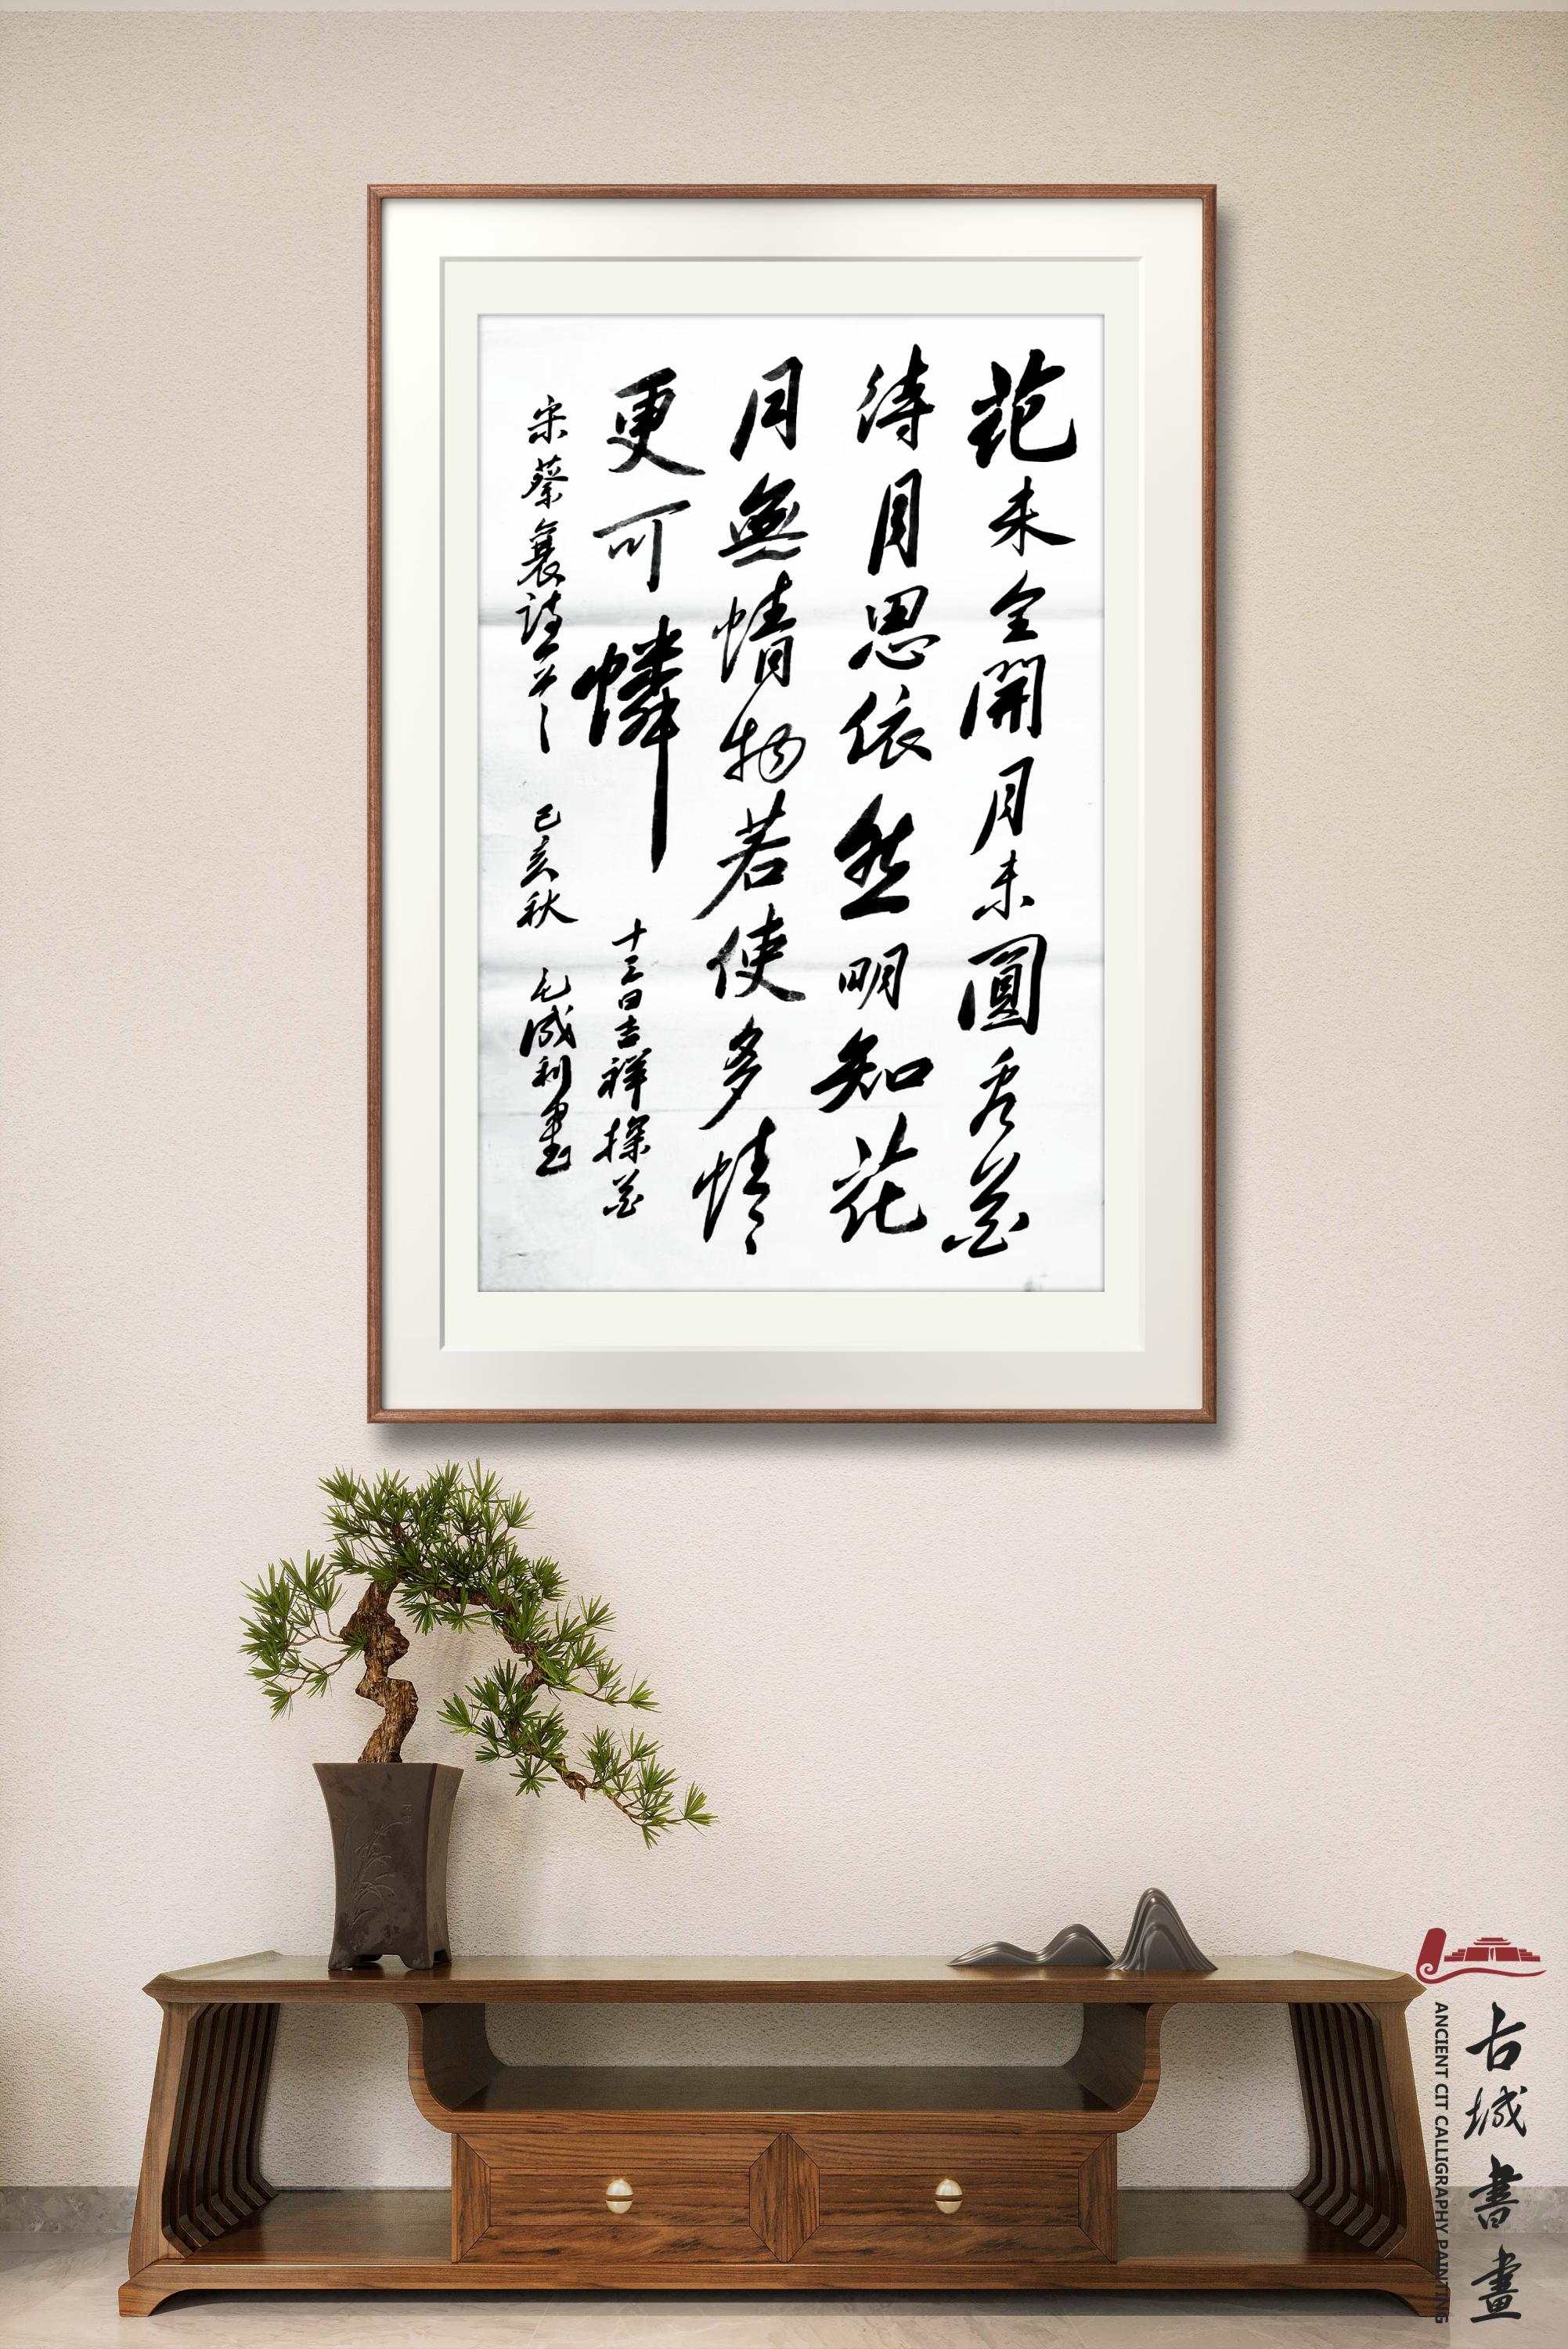 花未全開月未圓看花
待月思依然明知花
月無情物若使多情
更可憐
十三日吉祥探花
宋蔡襄詩一首 己亥秋 利書
古城書畫
ANCIENT CIT CALLIGRAPHY PAINTING